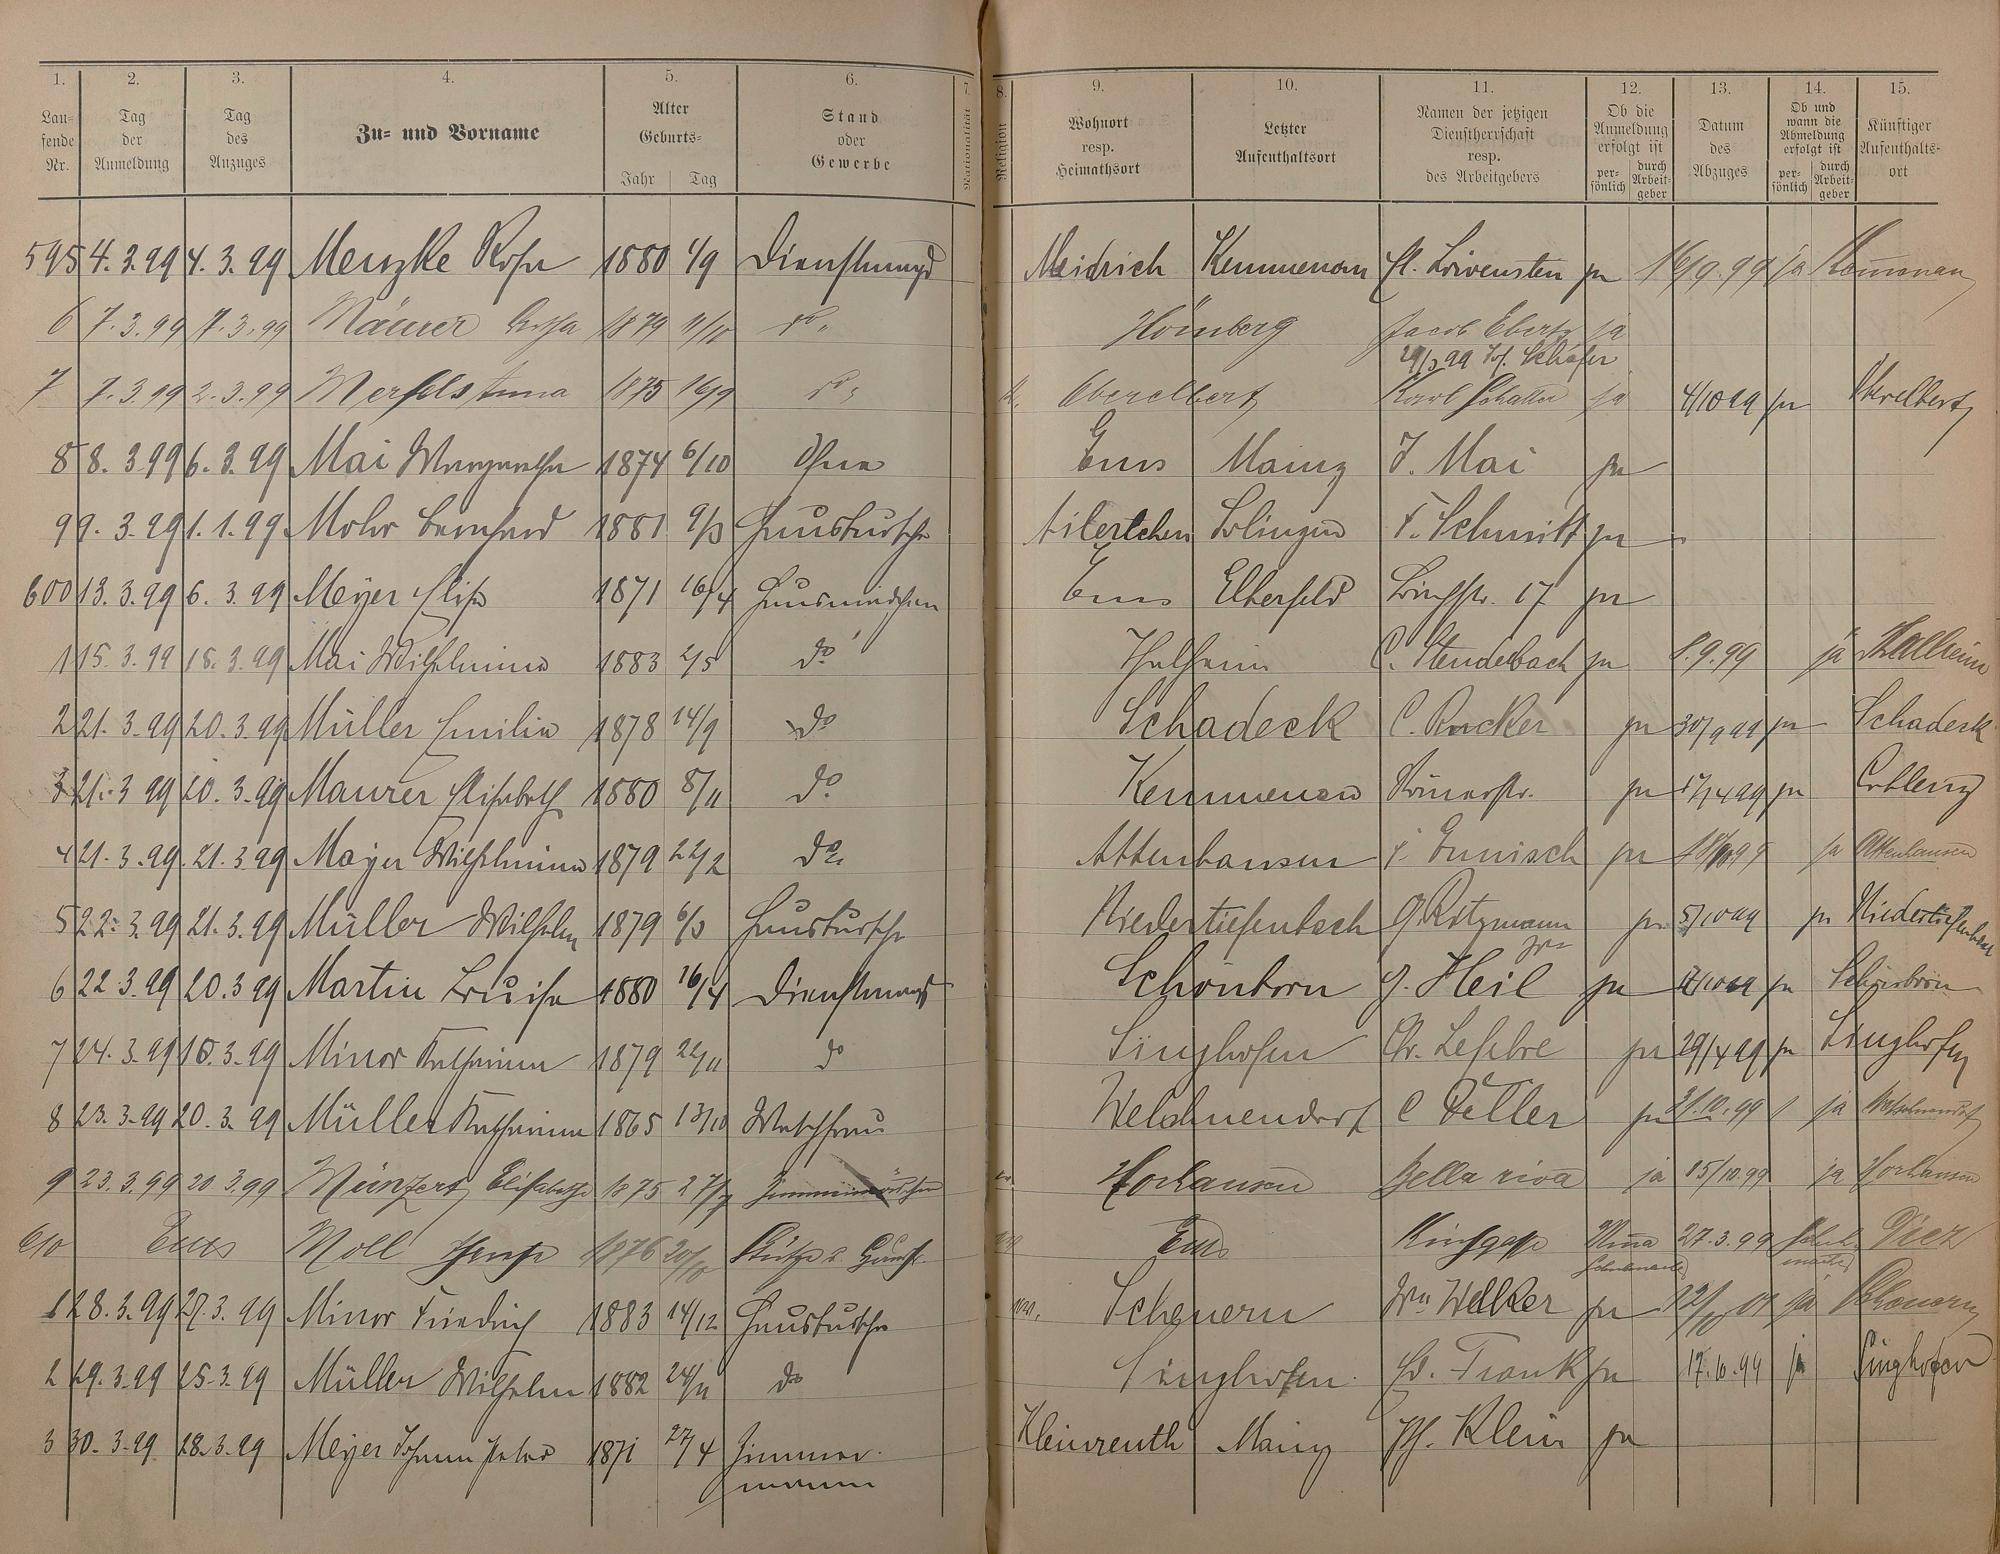 1. 2. 3. 4. 5. 6. 7. 8. 9. 10. 11. 12. 13. 14. 15.
Lau- fende Nr. Tag der Anmeldung Tag des Anzuges Zu- und Vorname Alter Geburts- Jahr Tag Stand oder Gewerbe Nationalität Religion Wohnort resp. Heimathsort Letzter Aufenthaltsort Namen der jetzigen Dienstherrschaft resp. des Arbeitgebers Ob die Anmeldung erfolgt ist per- sönlich durch Arbeit- geber Datum des Abzuges Ob und wann die Abmeldung erfolgt ist per- sönlich durch Arbeit- geber Künftiger Aufenthalts- ort
595 4.3.99 4.3.99 Menzke Rosa 1880 4/9 Dienstmagd Meidrich Kemmenau ja 16/9.99 ja Kemmenau
6 7.3.99 7.3.99 Maurer 1879 11/10 do Hömberg Jacob Ebertz ja
29/3 99 Schäfer
7 7.3.99 2.3.99 Anna 1875 16/9 do Oberelbert Karl ja 4/10 99 ja Oberelbert
8 8.3.99 6.3.99 Mai Margaretha 1874 6/10 Ohne Ems Mainz J. Mai ja
9 9.3.99 1.1.99 Mohr Bernhard 1881 9/3 Hausbursche Ailertchen Solingen F. Schmitt ja
600 13.3.99 6.3.99 Meyer Elise 1871 16/4 Hausmädchen Ems Elberfeld 17 ja
1 15.3.99 15.3.99 Mai Wilhelmine 1883 2/5 do Thalheim C. Stendebach ja 8.9.99 ja Thalheim
2 21.3.99 20.3.99 Müller Emilie 1878 14/9 do Schadeck C. Rucker ja 30/9 99 ja Schadeck
3 21.3.99 20.3.99 Maurer Elisabeth 1880 8/11 do Kemmenau Römerstr. ja 17/4 99 ja Coblenz
4 21.3.99 21.3.99 Mayer Wilhelmine 1879 22/2 do Attenhausen ja ja Attenhausen
5 22.3.99 21.3.99 Müller Wilhelm 1879 6/3 Hausbursche Niedertiefenbach G. Ritzmann ja 5/10 99 ja Niedertiefenbach
6 22.3.99 20.3.99 Martin Louise 1880 16/4 Dienstmagd Schönborn G. Heil ja ja Schönborn
7 24.3.99 15.3.99 Minor Katharina 1879 22/11 do Singhofen Chr. Lefebre ja 29/4 99 ja Singhofen
8 23.3.99 20.3.99 Müller Katharina 1865 13/10 Waschfrau Welschneudorf C ja 21.10.99 ja Welschneudorf
9 23.3.99 20.3.99 Münzert Elisabetha 1875 27/7 Zimmermädchen Horhausen Bella riva ja 15/10.99 ja Horhausen
610 Ems Moll 1876 20/10 Stütze d. Hausfr. Ems 27.3.99 Diez
1 28.3.99 27.3.99 Minor Friedrich 1883 14/12 Hausbursche Scheuern Ww Welker ja ja Scheuern
2 29.3.99 25.3.99 Müller Wilhelm 1882 24/11 do Singhofen Frank ja 17.10.99 ja Singhofen
3 30.3.99 28.3.99 Meyer Johann Peter 1871 27/4 Zimmer- Mainz Klein ja
mann